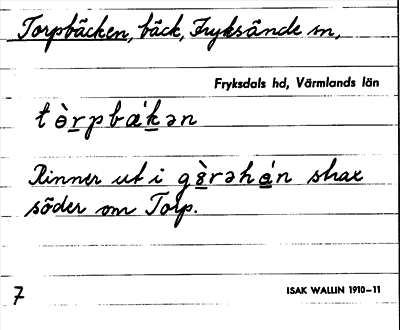 Torpbäcken, bäck, Fryksände sn,
Fryksdals hd, Värmlands län
tò̱rpbæ̀ḵən
Rinner ut i gò̱rəhá̱n strax
söder om Torp.
7
ISAK WALLIN 1910–11